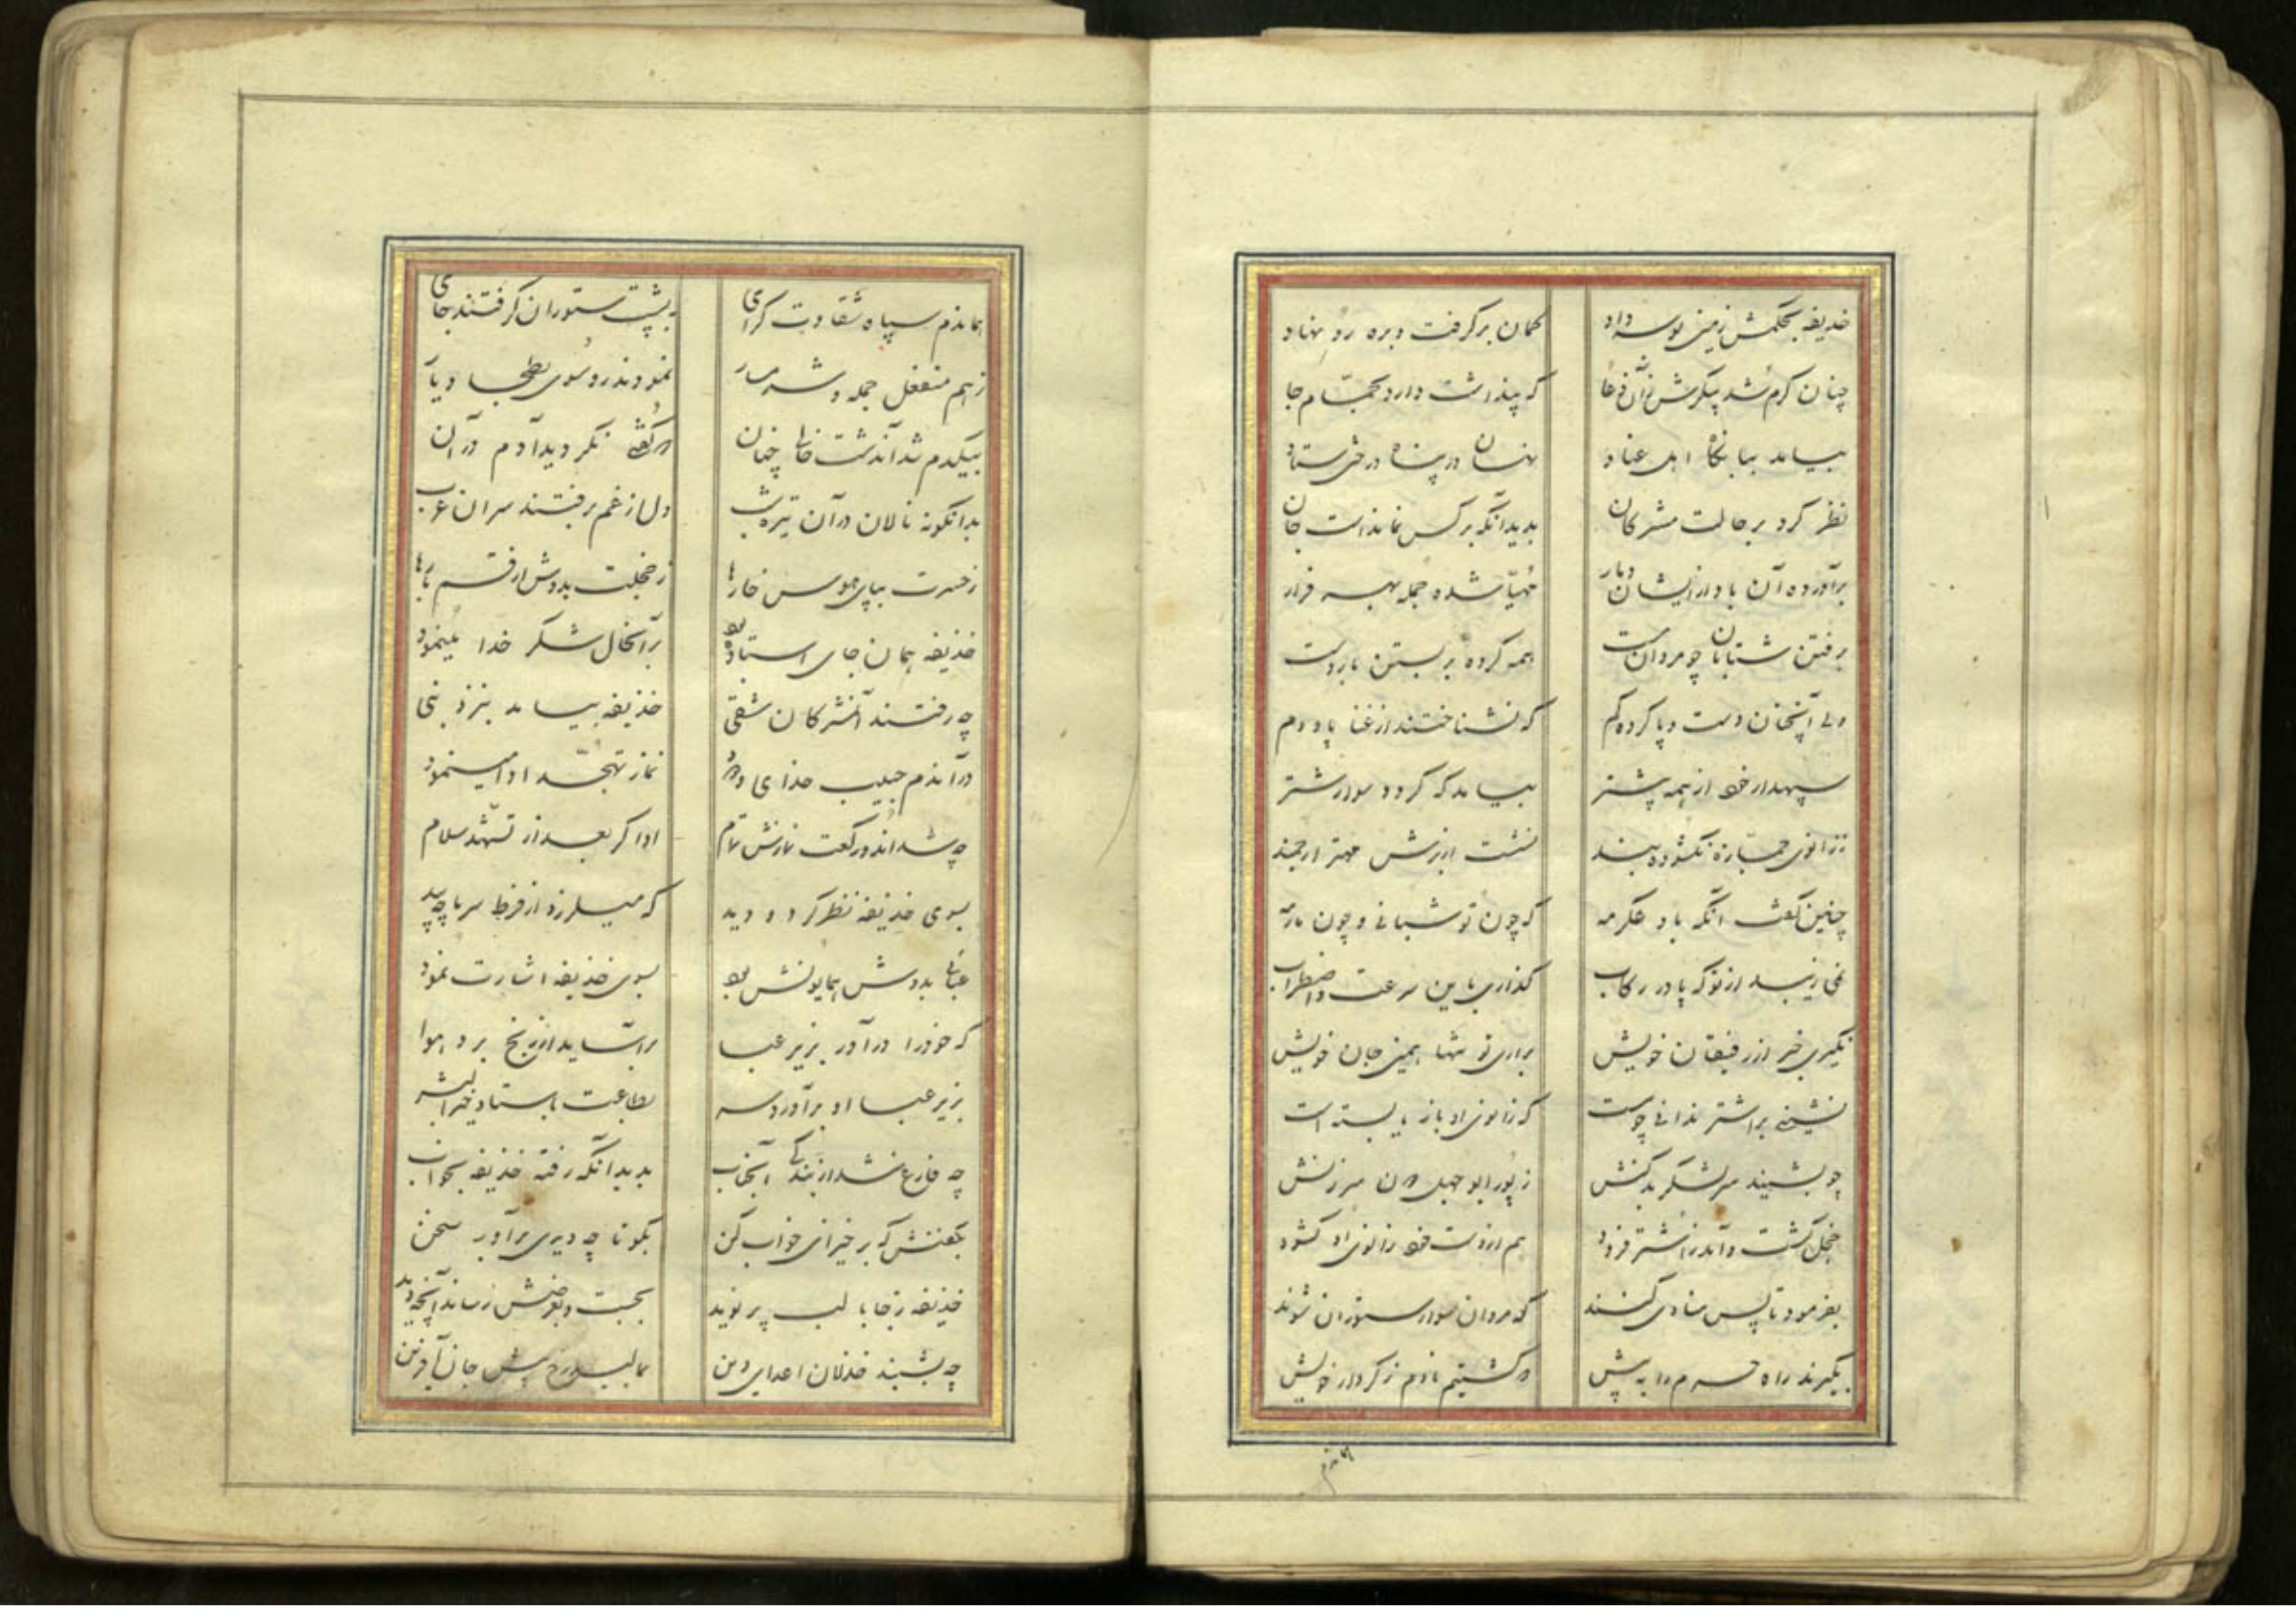 خذیفه بحکمش زمین بوسه داد کمان برگرفت و بره رو نهاد
چنان گرم شد پیکرش زآن دعا که پنداشت دارد بحمّام جا
بیامد ببانگاه اهل عناد نهان در پناه درختی ستاد
نظر کرد بر حالت مشرکان بدید آنکه برکس نماندست جان
برآورده آن باد از ایشان دمار مهیّا شده جمله بهر فرار
برفتن شتابان چو مردان مست همه کرده بر بستن بار دست
ولی آنچنان دست و پا کرده گم که نشناختند از غنا پا و دم
سپهدار خود از همه پیشتر بیامد که گردد سوار شتر
ز زانوی جمّازه نگشوده بند نشست از برش مهتر ارجمند
چنین گفت آنگه باو عکرمه که چون تو شبانی و چون ما رمه
نمی زیبد از تو که پا در رکاب گذاری باین سرعت و اضطراب
نگیری خبر از رفیقان خویش براری تو تنها همین جان خویش
نشینی بر اشتر ندانی چو مست که زانوی او باز یا بسته است
چو بشنید سرلشکر بدکنش ز پور ابوجهل آن سرزنش
خجل گشت و آمد ز اشتر فرود هم از دست خود زانوی او گشود
بفرمود تا پس منادی کنند که مردان سوار ستوران شوند
بگیرند راه حرم را به پیش که گشتیم نادم ز کردار خویش
هماندم
هماندم سپاه شقاوت گرای به پشت ستوران گرفتند جای
ز هم منفعل جمله و شرمسار نمودند رو سوی بطحا دیار
بیکدم شد آندشت خالی چنان که گفتی نگردید آدم در آن
بدانگونه نالان در آن تیره شب دل از غم برفتند سران عرب
ز حسرت بپای هوس خارها ز خجلت بدوش از قسم بارها
خذیفه همان جای استاده بود بر آنحال شکر خدا مینمود
چه رفتند آنمشرکان شقی خذیفه بیامد بنزد نبی
در آندم حبیب خدای ودود نماز تهجّد ادا مینمود
چه شد اندو رکعت نمازش تمام ادا کرد بعد از تشهّد سلام
بسوی خذیفه نظر کرد و دید که میلرزد از فرط سرما چه بید
عبائی بدوش همایونش بود بسوی خذیفه اشارت نمود
که خود را در آور بزیر عبا برآساید از رنج برد هوا
بزیر عبا او برآورد سر بطاعت باستاد خیرالبشر
چه فارغ شد از بندگی آنجناب بدید آنکه رفته خذیفه بخواب
بگفتش که برخیز ای خواب کن بگو تا چه دیدی برآور سخن
خذیفه ز جا با لب پر نوید بجست و بعرضش رساند آنچه دید
چه بشنید خذلان اعدای دین بمالید رخ پیش جان آفرین